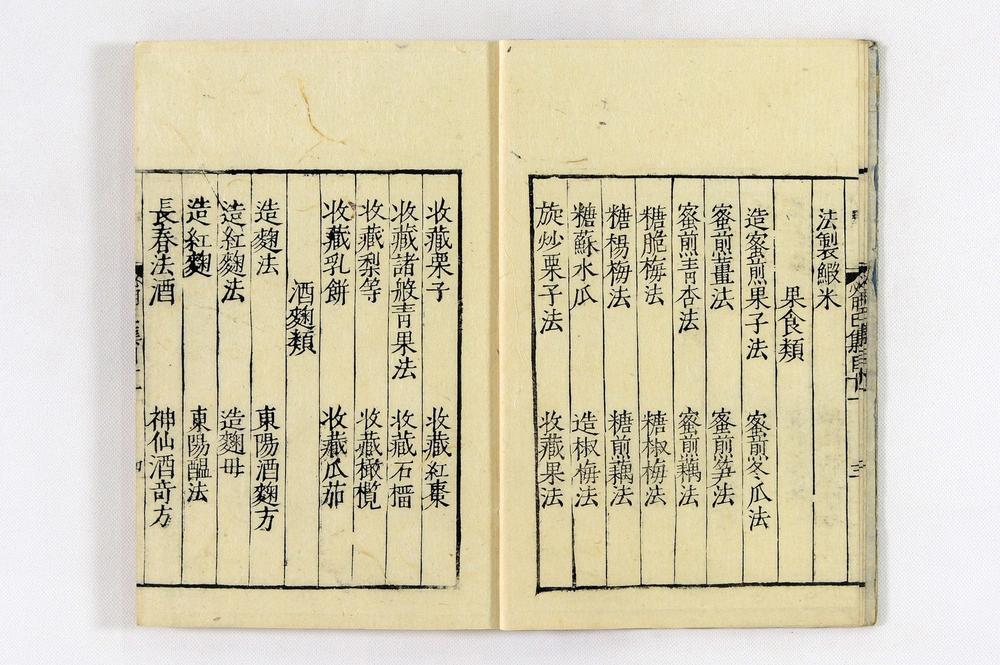 法製鰕米
果食類
造蜜煎果子法 蜜煎冬瓜法
蜜煎薑法 蜜煎笋法
蜜煎青杏法 蜜煎藕法
糖脆梅法 糖椒梅法
糖楊梅法 糖煎藕法
糖蘇水瓜 造椒梅法
旋炒栗子法 收藏果法
收藏栗子 收藏紅棗
收藏諸般青果法 收藏石榴
收藏梨等 收藏橄欖
收藏乳餅 收藏瓜茄
酒麹類
造麹法 東陽酒麹方
造紅麹法 造麹母
造紅麹 東陽醖法
長春法酒 神仙酒奇方